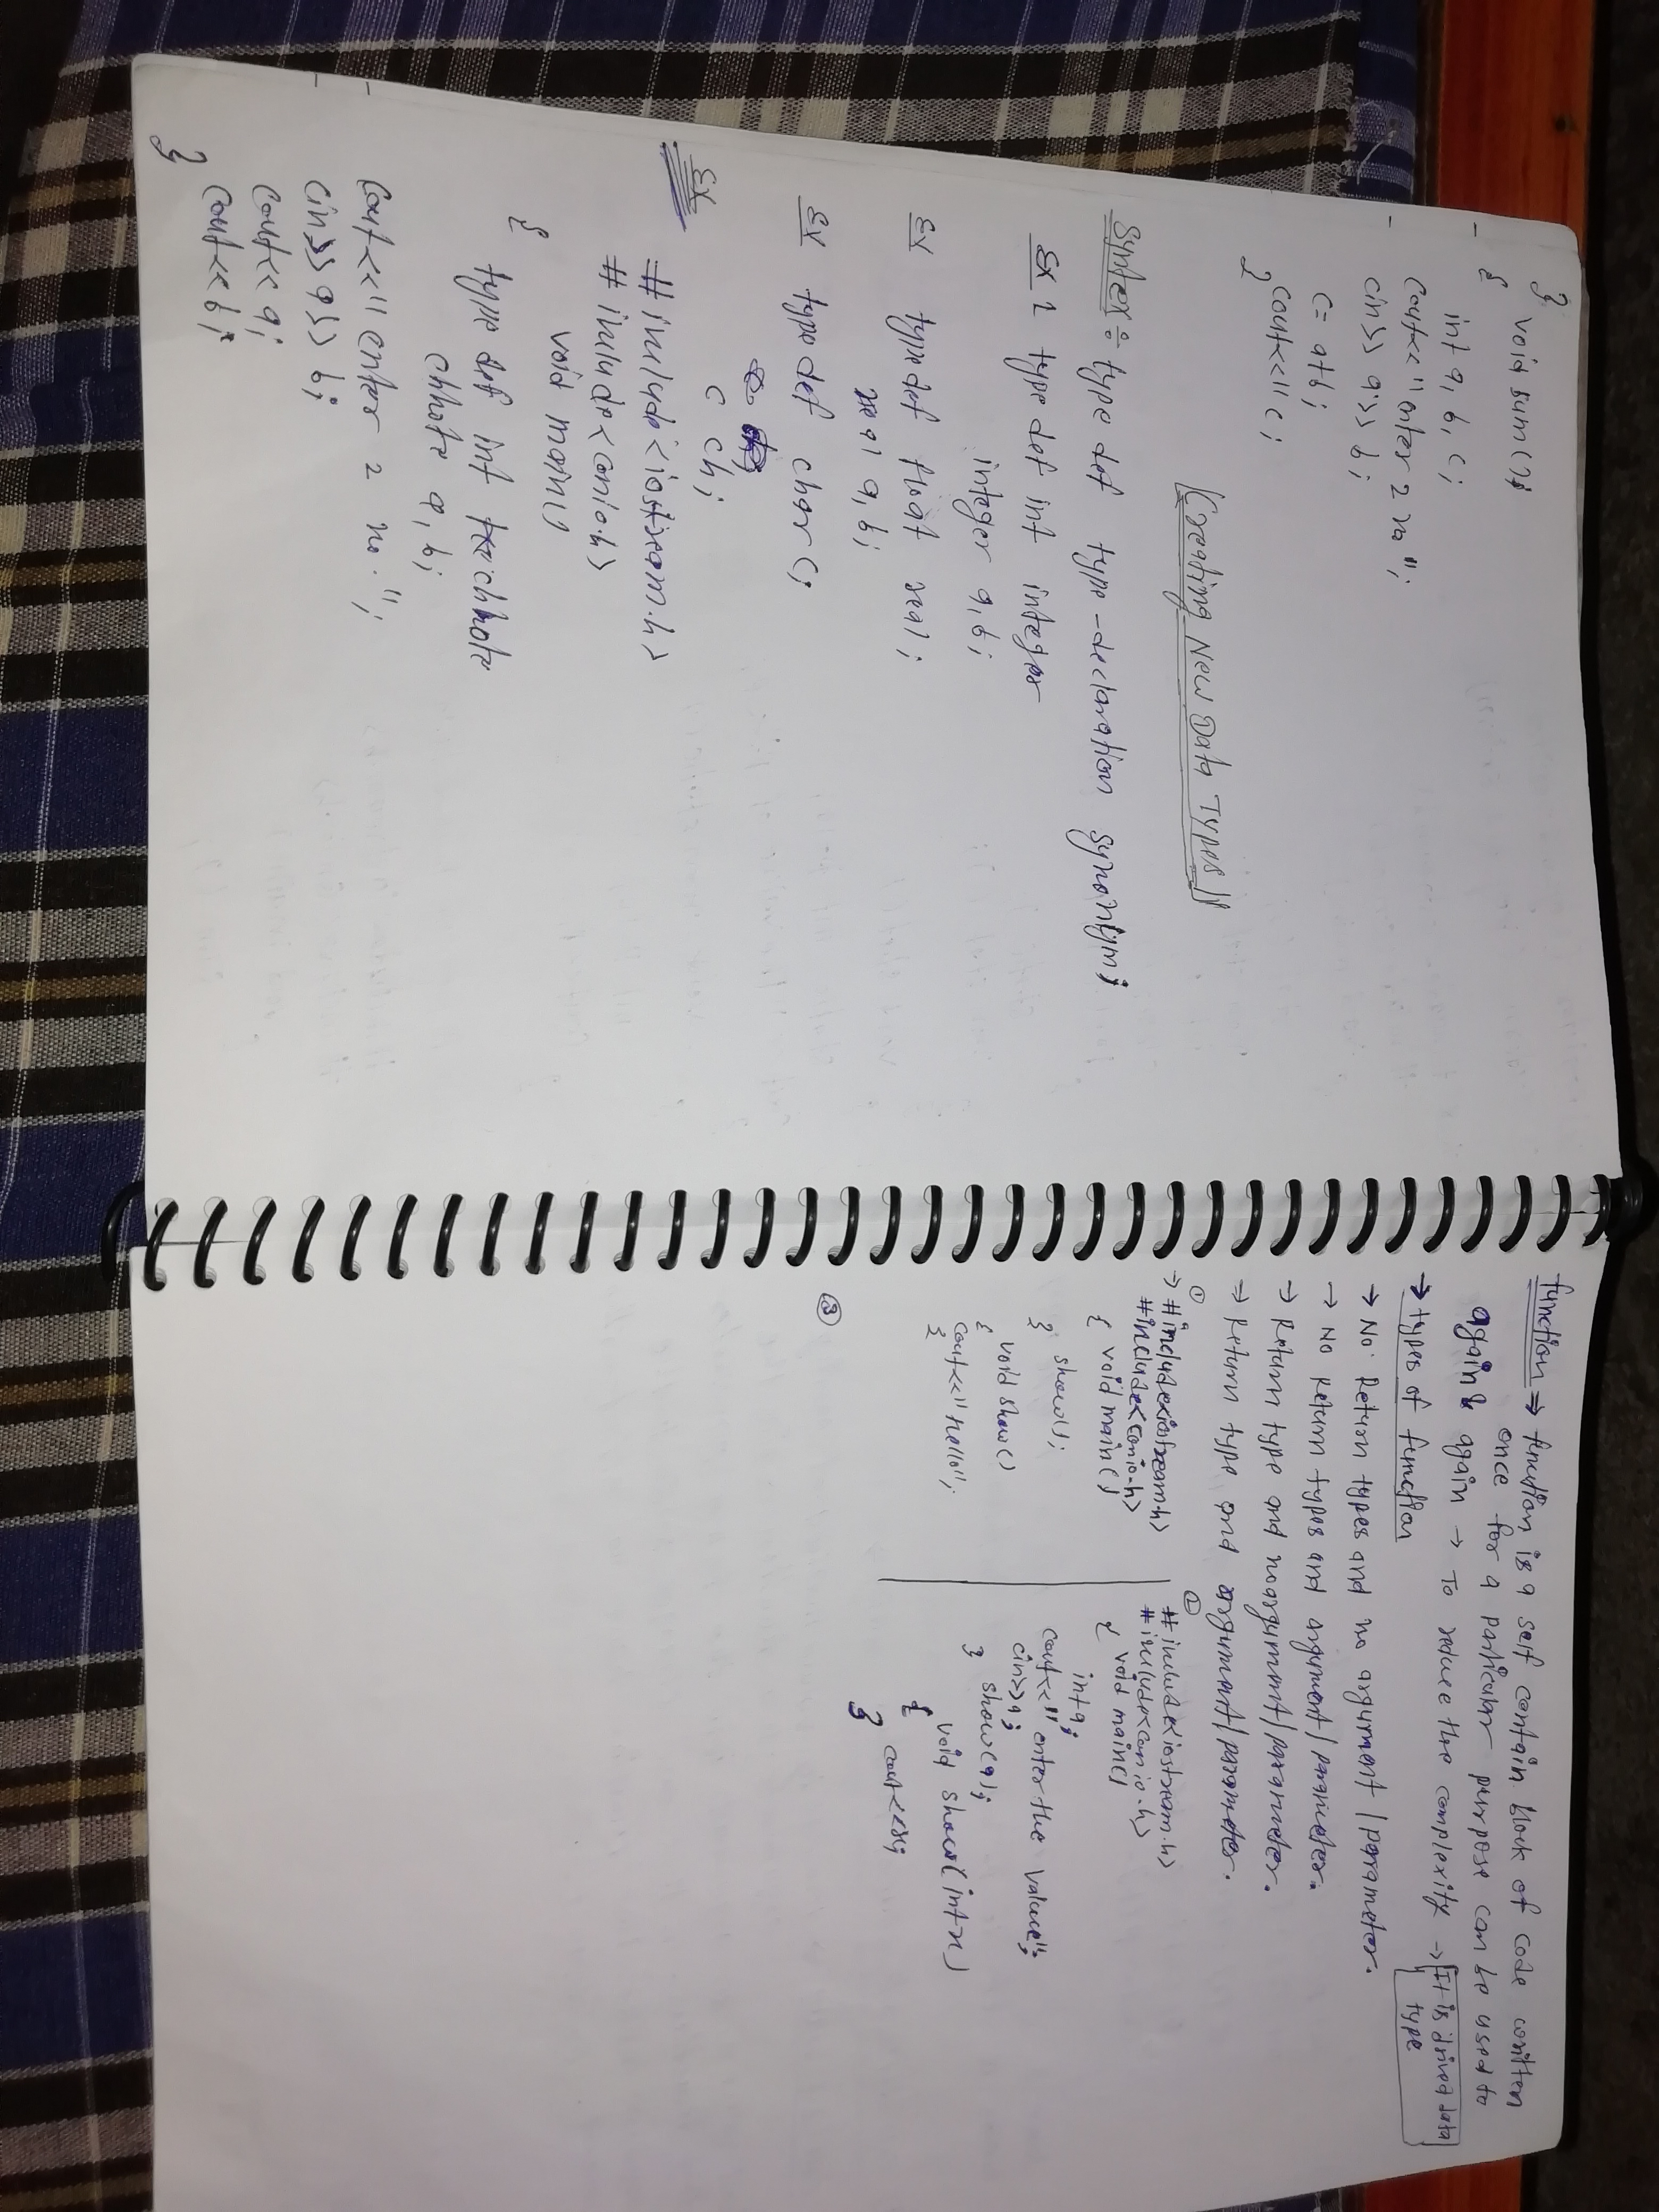 } void sum();
{
int a, b, c;
cout<<"enter 2 no";
cin>> a>> b;
c= a+b;
cout<<"c;
}
Creating New Data Types
Syntex÷ type def type-declaration synontym;
Ex 1 type def int integer
integer a, b;
Ex type def float real;
real a, b;
Ex type def char c;
c ch;
Ex
#include<iostream.h>
#include<conio.h>
void main()
{
type def int chhota
chhota a, b;
cout<<"enter 2 no.";
cin>> a>> b;
cout<< a;
cout<< b;
}
function ⇒ function is a self contain block of code written
once for a particular purpose can be used to
again & again → To reduce the complexity → It is drived data
type
→ types of function
→ No Return types and no argument / parameter.
→ No Return types and argument / parameter.
→ Return type and no argument / parameter.
→ Return type and argument / parameter.
①
→ #include<iostream.h>
#include<conio.h>
{ void main()
show();
}
void show()
{
cout<<"hello";
}
②
#include<iostream.h>
#include<conio.h>
{ void main()
int a;
cout<<" enter the value";
cin>>a;
show(a);
}
void show(int x)
{
cout<<x;
}
③